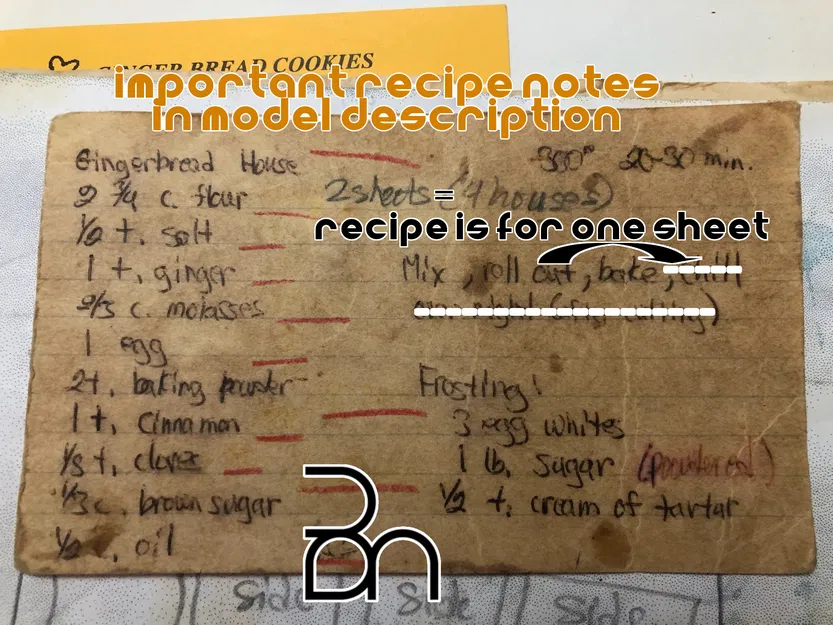 GINGER BREAD COOKIES
important recipe notes
in model description
Gingerbread House
300° 20-30 min.
2 3/4 c. flour
2 sheets = (4 houses)
recipe is for one sheet
1/2 t. salt
1 t. ginger
Mix, roll out, bake, chill
2/3 c. molasses
1 egg
2 t. baking powder
Frosting!
1 t. Cinnamon
3 egg whites
t. cloves
1 lb. sugar (powdered)
1/3 c. brown sugar
1/2 t. cream of tartar
1/2 c. oil
Side
Side
Side